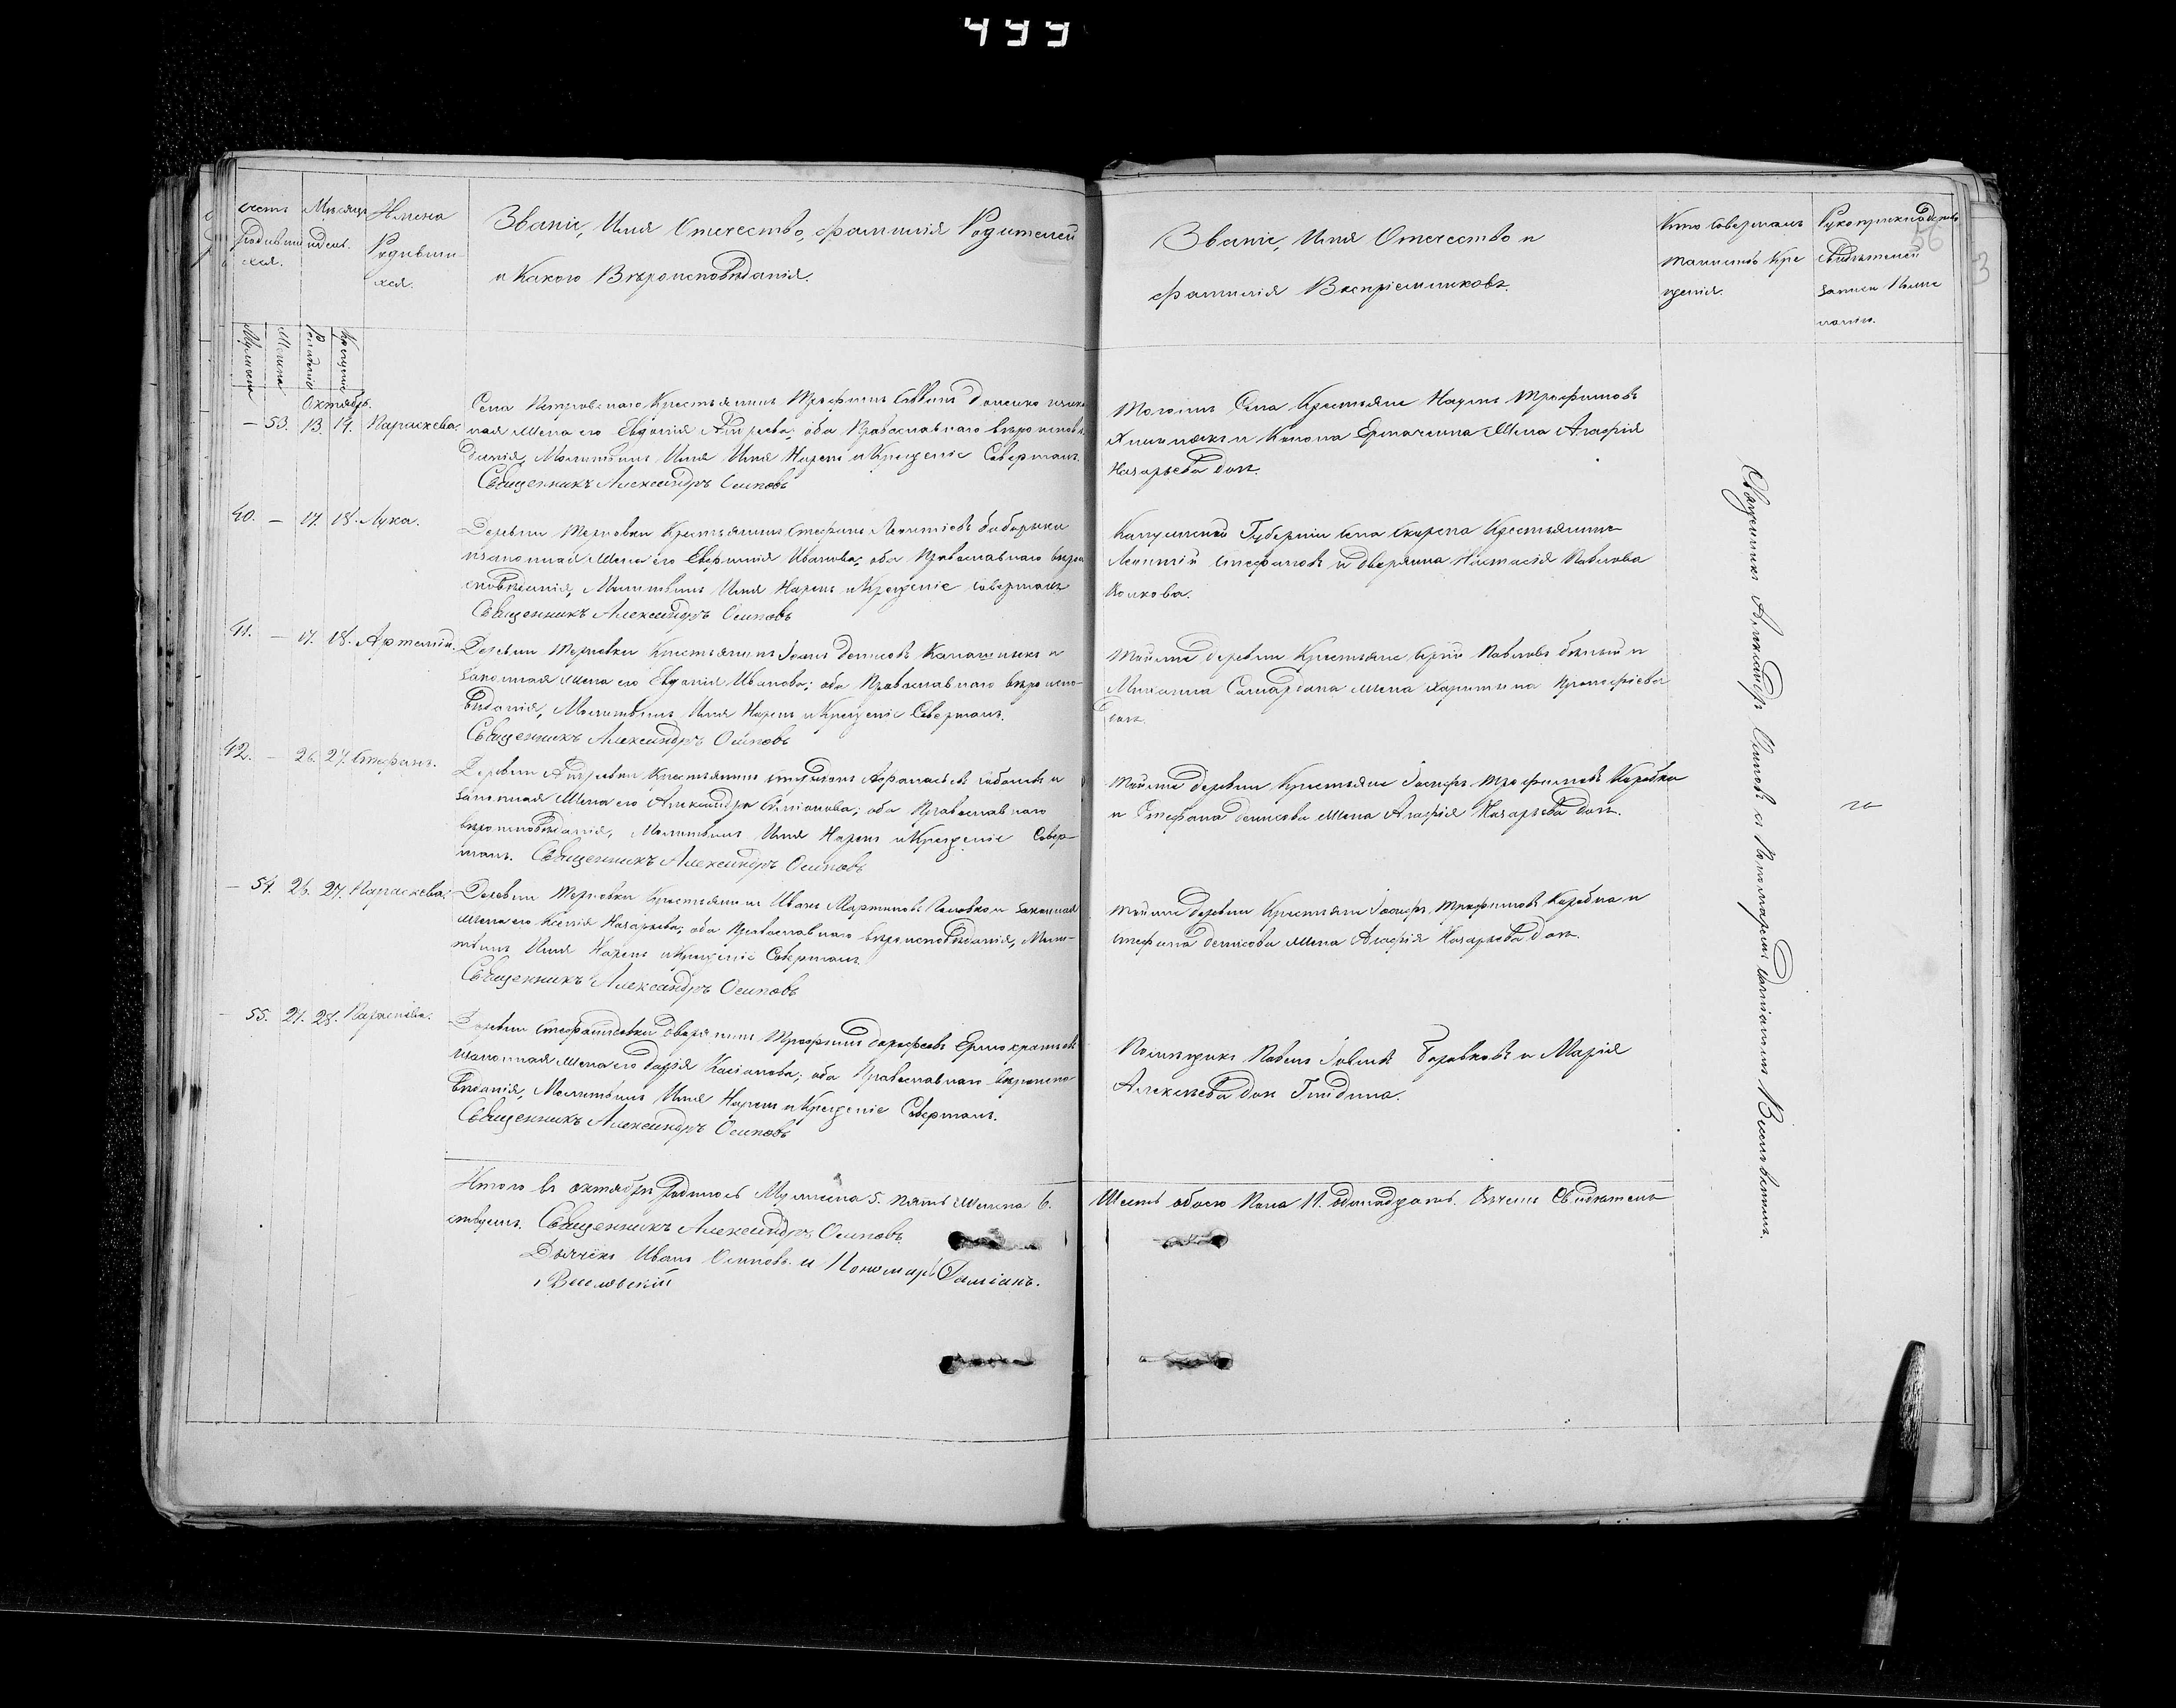 499
Счетъ родившихся.
Мѣсяцъ и день.
Имена Родивших-
ся.
Званіе, Имя Отечество, фамилія Родителей
и Какого Вѣроисповѣданія.
Званіе, Имя Отечество и
фамилія Воспріемниковъ.
Кто совершалъ
таинство Кре
щенія.
Рукоприкладство
свидѣтелей
записи по же
ланію.
56
3
Мужеска
Женска
Рожденіе
Крещеніе
Октябрь.
— 53. 13. 19. Параскева.
Села Крестьянинъ Трофимъ Саввинъ и закон
ная жена его Евдокія Андреева; оба Православнаго вѣроисповѣ
данія, Молитвилъ Имя Нарекъ и Крещеніе Совершалъ.
Священникъ Александръ Осиповъ
Тогожъ Села Крестьяне Наумъ Трофимовъ
и Конона жена Агафія
Назарьева дочь.
40. — 17. 18. Лука.
Деревни Терновки Крестьянинъ Стефанъ Леонтіевъ
и законная жена его Евфимія Иванова; оба Православнаго вѣрои
сповѣданія, Молитвилъ Имя Нарекъ и Крещеніе совершалъ
Священникъ Александръ Осиповъ
Губерніи села Крестьянинъ
Леонтій Стефановъ и дворянка Настасія Павлова
Волкова.
41. — 17. 18. Артемій.
Деревни Терновки Крестьянинъ Іоанъ Денисовъ и
законная жена его Евдокія Иванова; оба Православнаго вѣроиспо-
вѣданія, Молитвилъ Имя Нарекъ и Крещеніе Совершалъ.
Священникъ Александръ Осиповъ
Тойже деревни Крестьяне Павловъ и
жена Харитина Прокофіева
дочь.
42. — 26. 27. Стефанъ.
Деревни Андреевки Крестьянинъ Афанасьевъ и
законная жена его Александра; оба Православнаго
вѣроисповѣданія, Молитвилъ Имя Нарекъ и Крещеніе Совер-
шалъ. Священникъ Александръ Осиповъ
Тойже деревни Крестьяне Іосифъ Трофимовъ Коробка
и Стефана Денисова жена Агафія Назарьева дочь.
— 54. 26. 27. Параскева.
Деревни Терновки Крестьянинъ Иванъ Мартиновъ и законная
жена его Ксенія Назарьева; оба Православнаго вѣроисповѣданія, Моли-
твилъ Имя Нарекъ и Крещеніе Совершалъ
Священникъ Александръ Осиповъ
Тойже деревни Крестьяне Іосифъ Трофимовъ Коробка и
Стефана Денисова жена Агафія Назарьева дочь.
— 55. 27. 28. Параскева.
Деревни Стефанидовки дворянинъ Трофимъ Дорофеевъ
и законная жена его Дарія Касіанова; оба Православнаго вѣроиспо
вѣданія, Молитвилъ Имя Нарекъ и Крещеніе Совершалъ.
Священникъ Александръ Осиповъ
Помѣщикъ Павелъ и Марія
Алексѣева дочь
Священникъ Александръ Осиповъ съ Пономаремъ Даміаномъ
Итого въ октябрѣ родилось Мужеска 5. пять Женска 6.
Шесть обоего Пола 11. одинадцать. въ чемъ Свидѣтель
ствуемъ. Священникъ Александръ Осиповъ.
Дьячекъ Иванъ Осиповъ и Пономарь Даміанъ.